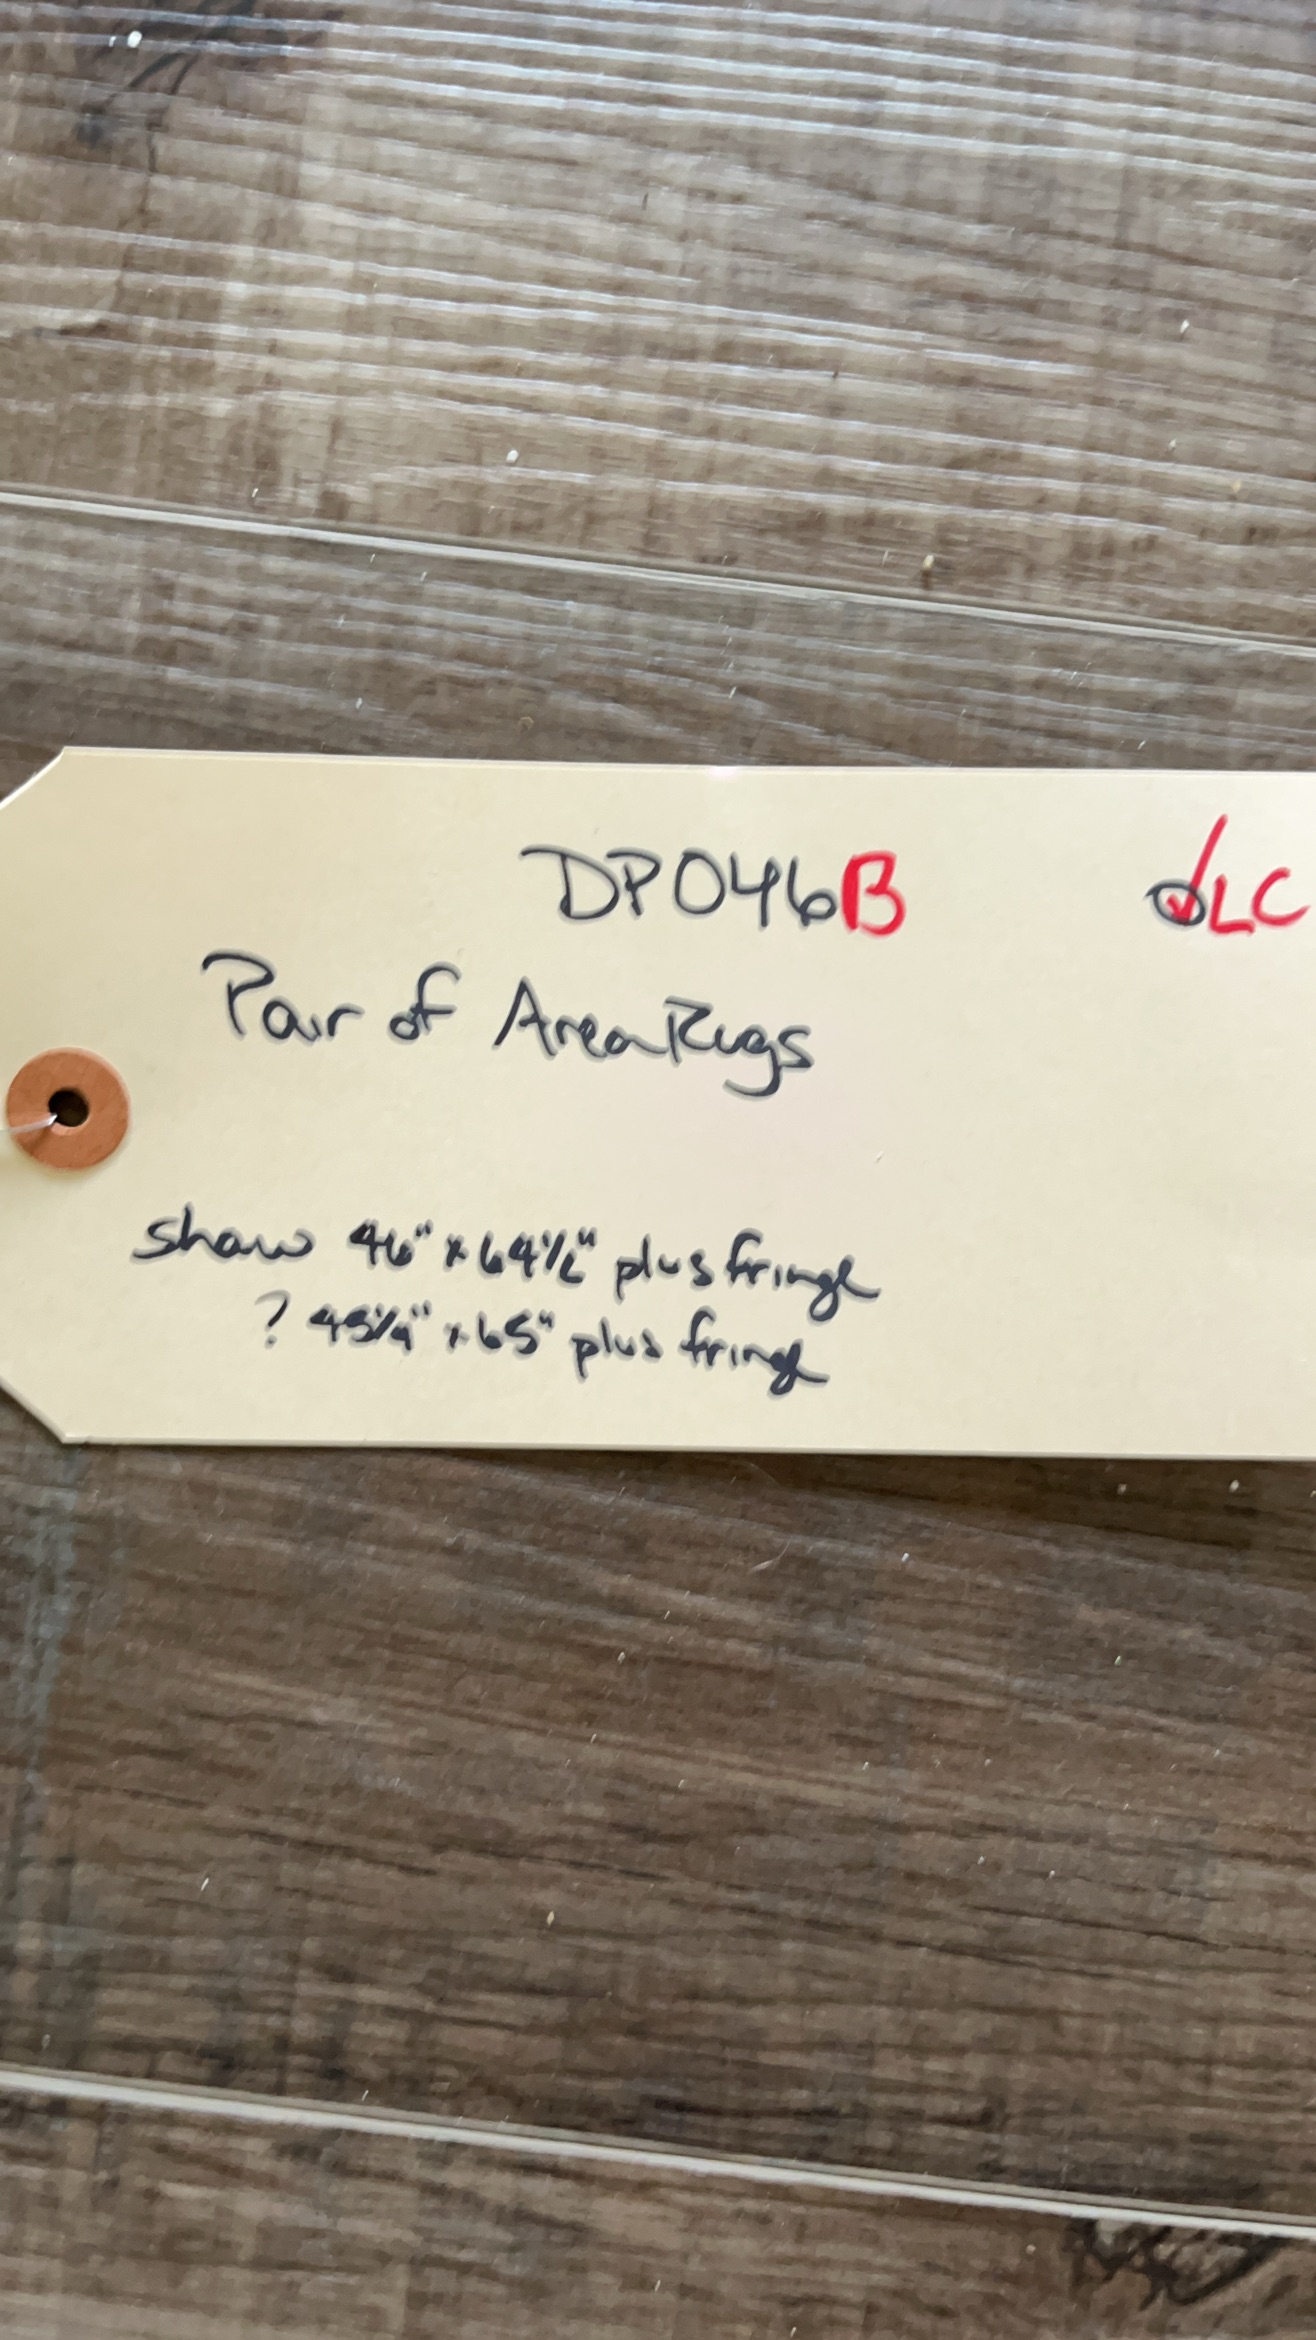 DP046B ✓LC
Pair of Area Rugs
Shaw 46" x 64½" plus fringe
? 45¼" x 65" plus fringe